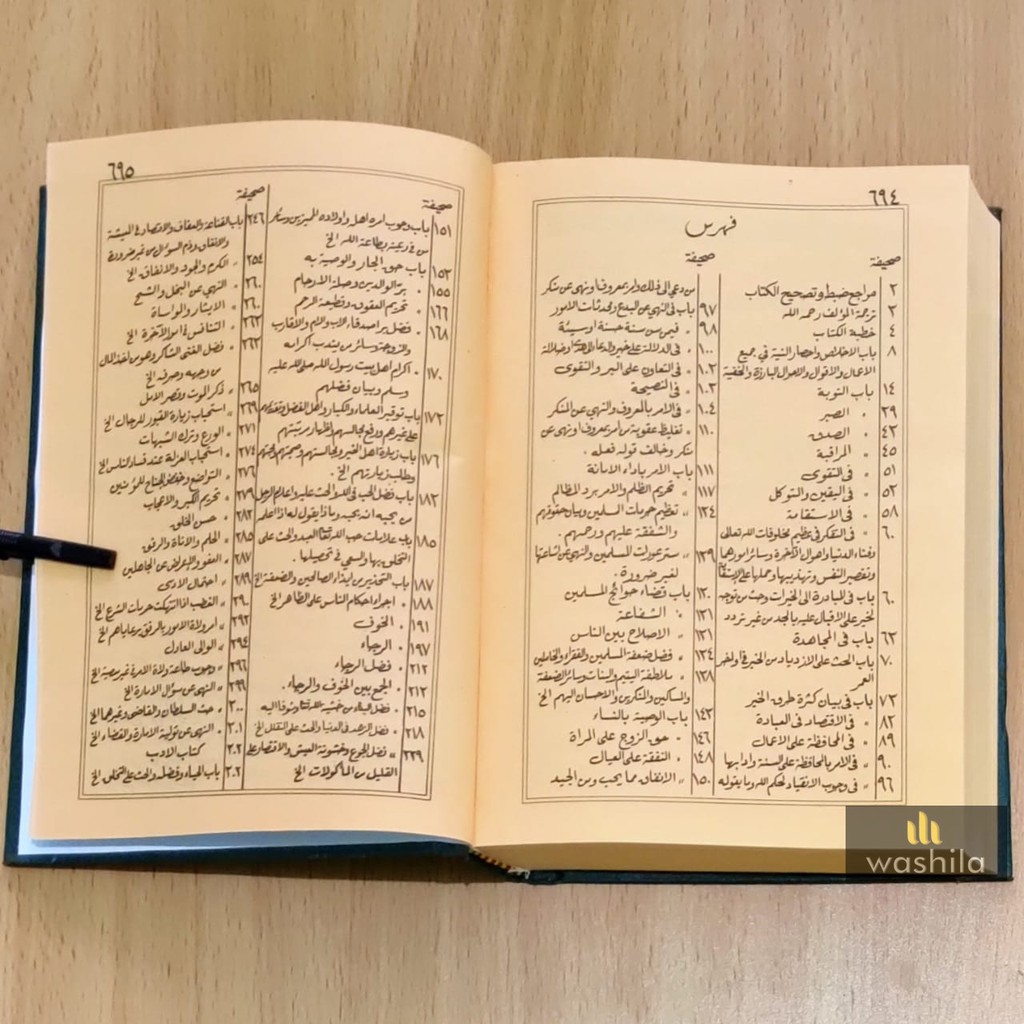 ٦٩٤
فهرس
صحيفة
٢ مراجع ضبط وتصحيح الكتاب
٢ ترجمة المؤلف رحمه الله
٤ خطبة الكتاب
٨ باب الاخلاص واحضار النية في جميع
الاعمال والاقوال والاحوال البارزة والخفية
١٤ باب التوبة
٢٩ " الصبر
٤٢ " الصدق
٤٥ " المراقبة
٥١ " فى التقوى
٥٢ " فى اليقين والتوكل
٥٨ " فى الاستقامة
٦٠ " فى التفكر فى عظيم مخلوقات الله تعالى
وفناء الدنيا واهوال الآخرة وسائر امورهما
وتقصير النفس وتهذيبها وحملها على الاستقامة
٦٠ باب فى المبادرة الى الخيرات وحث من توجه
لخير على الاقبال عليه بالجد من غير تردد
٦٢ باب فى المجاهدة
٧٠ باب الحث على الازدياد من الخير فى اواخر
العمر
٧٢ باب فى بيان كثرة طرق الخير
٨٢ " فى الاقتصاد فى العبادة
٨٩ " فى المحافظة على الاعمال
٩٠ " فى الامر بالمحافظة على السنة وادابها
٩٦ " فى وجوب الانقياد لحكم الله وما يقوله
صحيفة
من دعي الى ذلك وامر بمعروف او نهى عن منكر
٩٧ باب فى النهى عن البدع ومحدثات الامور
٩٨ " فيمن سن سنة حسنة او سيئة
١٠٠ " فى الدلالة على خير والدعاء الى هدى او ضلالة
١٠٢ " فى التعاون على البر والتقوى
١٠٣ " فى النصيحة
١٠٤ " فى الامر بالمعروف والنهى عن المنكر
١١٠ " تغليظ عقوبة من امر بمعروف او نهى عن
منكر وخالف قوله فعله .
١١١ باب الامر باداء الامانة
١١٧ " تحريم الظلم والامر برد المظالم
١٢٤ " تعظيم حرمات المسلمين وبيان حقوقهم
والشفقة عليهم ورحمهم .
١٢٩ " ستر عورات المسلمين والنهي عن اشاعتها
لغير ضرورة .
١٣٠ باب قضاء حوائج المسلمين
١٣١ " الشفاعة
١٣١ " الاصلاح بين الناس
١٣٤ " فضل ضعفة المسلمين والفقراء والخاملين
١٣٨ " ملاطفة اليتيم والبنات وسائر الضعفة
والمساكين والمنكرين والاحسان اليهم الخ
١٤٣ باب الوصية بالنساء
١٤٦ " حق الزوج على المرأة
١٤٨ " النفقة على العيال
١٥٠ " الانفاق مما يحب ومن الجيد
٦٩٥
صحيفة
١٥١ باب وجوب امره اهله واولاده المميزين وسائر
من فى رعيته بطاعة الله الخ
١٥٢ باب حق الجار والوصية به
١٥٥ " بر الوالدين وصلة الارحام
١٦٦ " تحريم العقوق وقطيعة الرحم
١٦٨ " فضل بر اصدقاء الاب والام والاقارب
والزوجة وسائر من يندب اكرامه
١٧٠ " اكرام اهل بيت رسول الله صلى الله عليه
وسلم وبيان فضلهم
١٧٢ باب توقير العلماء والكبار واهل الفضل وتقديمهم
على غيرهم ورفع مجالسهم واظهار مرتبتهم
١٧٦ باب زيارة اهل الخير ومجالستهم وصحبتهم ومحبتهم
وطلب زيارتهم الخ .
١٨٢ باب فضل الحب فى الله والحث عليه واعلام الرجل
من يحبه انه يحبه وماذا يقول له اذا اعلمه
١٨٥ باب علامات حب الله تعالى العبد والحث على
التخلق بها والسعي فى تحصيلها .
١٨٧ باب التحذير من ايذاء الصالحين والضعفة الخ
١٨٨ " اجراء احكام الناس على الظاهر الخ
١٩١ " الخوف
١٩٧ " الرجاء
٢١٢ " فضل الرجاء
٢١٢ " الجمع بين الخوف والرجاء .
٢١٥ " فضل البكاء من خشية الله تعالى وشوقا اليه
٢١٨ " فضل الزهد فى الدنيا والحث على التقلل الخ
٢٢٩ " فضل الجوع وخشونة العيش والاقتصار على
القليل من المأكولات الخ
صحيفة
٢٤٦ باب القناعة والعفاف والاقتصاد فى المعيشة
والانفاق وذم السؤال من غير ضرورة
٢٥٤ " الكرم والجود والانفاق الخ
٢٦٠ " النهى عن البخل والشح
٢٦٠ " الايثار والمواساة
٢٦٢ " التنافس فى امور الآخرة الخ
٢٦٣ " فضل الغنى الشاكر وهو من أخذ المال
من وجهه وصرفه الخ
٢٦٥ " ذكر الموت وقصر الامل
٢٦٩ " استحباب زيارة القبور للرجال الخ
٢٧١ " الورع وترك الشبهات
٢٧٤ " استحباب العزلة عند فساد الناس الخ
٢٧٦ " التواضع وخفض الجناح للمؤمنين
٢٧٩ " تحريم الكبر والاعجاب
٢٨٢ " حسن الخلق .
٢٨٥ " الحلم والاناة والرفق
٢٨٧ " العفو والاعراض عن الجاهلين
٢٨٩ " احتمال الاذى
٢٩٠ " الغضب اذا انتهكت حرمات الشرع الخ
٢٩٢ " امر ولاة الامور بالرفق برعاياهم الخ
٢٩٤ " الوالى العادل
٢٩٦ " وجوب طاعة ولاة الامر فى غير معصية الخ
٢٩٩ " النهى عن سؤال الامارة الخ
٣٠٠ " حث السلطان والقاضى وغيرهما الخ
٣٠١ " النهى عن تولية الامارة والقضاء الخ
٣٠٢ كتاب الادب
٣٠٢ باب الحياء وفضله والحث على التخلق الخ
washila